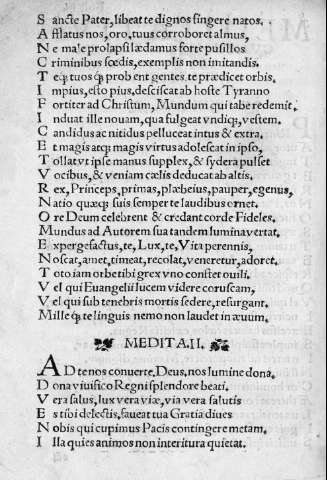 S ancte Pater, libeat te dignos fingere natos.
A fflatus nos, oro, tuus corroboret almus,
N e male prolapsi lædamus forte pusillos
C riminibus fœdis, exemplis non imitandis.
T eq; tuos q̃ prob ent gentes. te prædicet orbis.
I mpius, esto pius, desciscat ab hoste Tyranno
F ortiter ad Christum, Mundum qui tabe redemit.
I nduat ille nouam, qua fulgeat vndiq;, vestem.
C andidus ac nitidus pelluceat intus & extra.
E t magis atq; magis virtus adolescat in ipso,
T ollat vt ipse manus supplex, & sydera pulset
V ocibus, & veniam cælis deducat ab altis.
R ex, Princeps, primas, plæbeius, pauper, egenus,
N atio quæq; suis semper te laudibus ornet.
O re Deum celebrent & credant corde Fideles.
M undus ad Autorem sua tandem lumina vertat.
E xpergefactus, te, Lux, te, Vita perennis,
N oscat, amet, timeat, recolat, veneretur, adoret.
T oto iam orbe tibi grex vno constet ouili.
V el qui Euangelii lucem videre coruscam,
V el qui sub tenebris mortis sedere, resurgant.
M ille q̃ te linguis nemo non laudet in æuum.
MEDITA. II.
AD te nos conuerte, Deus, nos lumine dona.
D ona viuifico Regni splendore beati.
V era salus, lux vera viæ, via vera salutis
E s tibi delectis, faueat tua Gratia diues
N obis qui cupimus Pacis contingere metam.
I lla quies animos non interitura quietat.